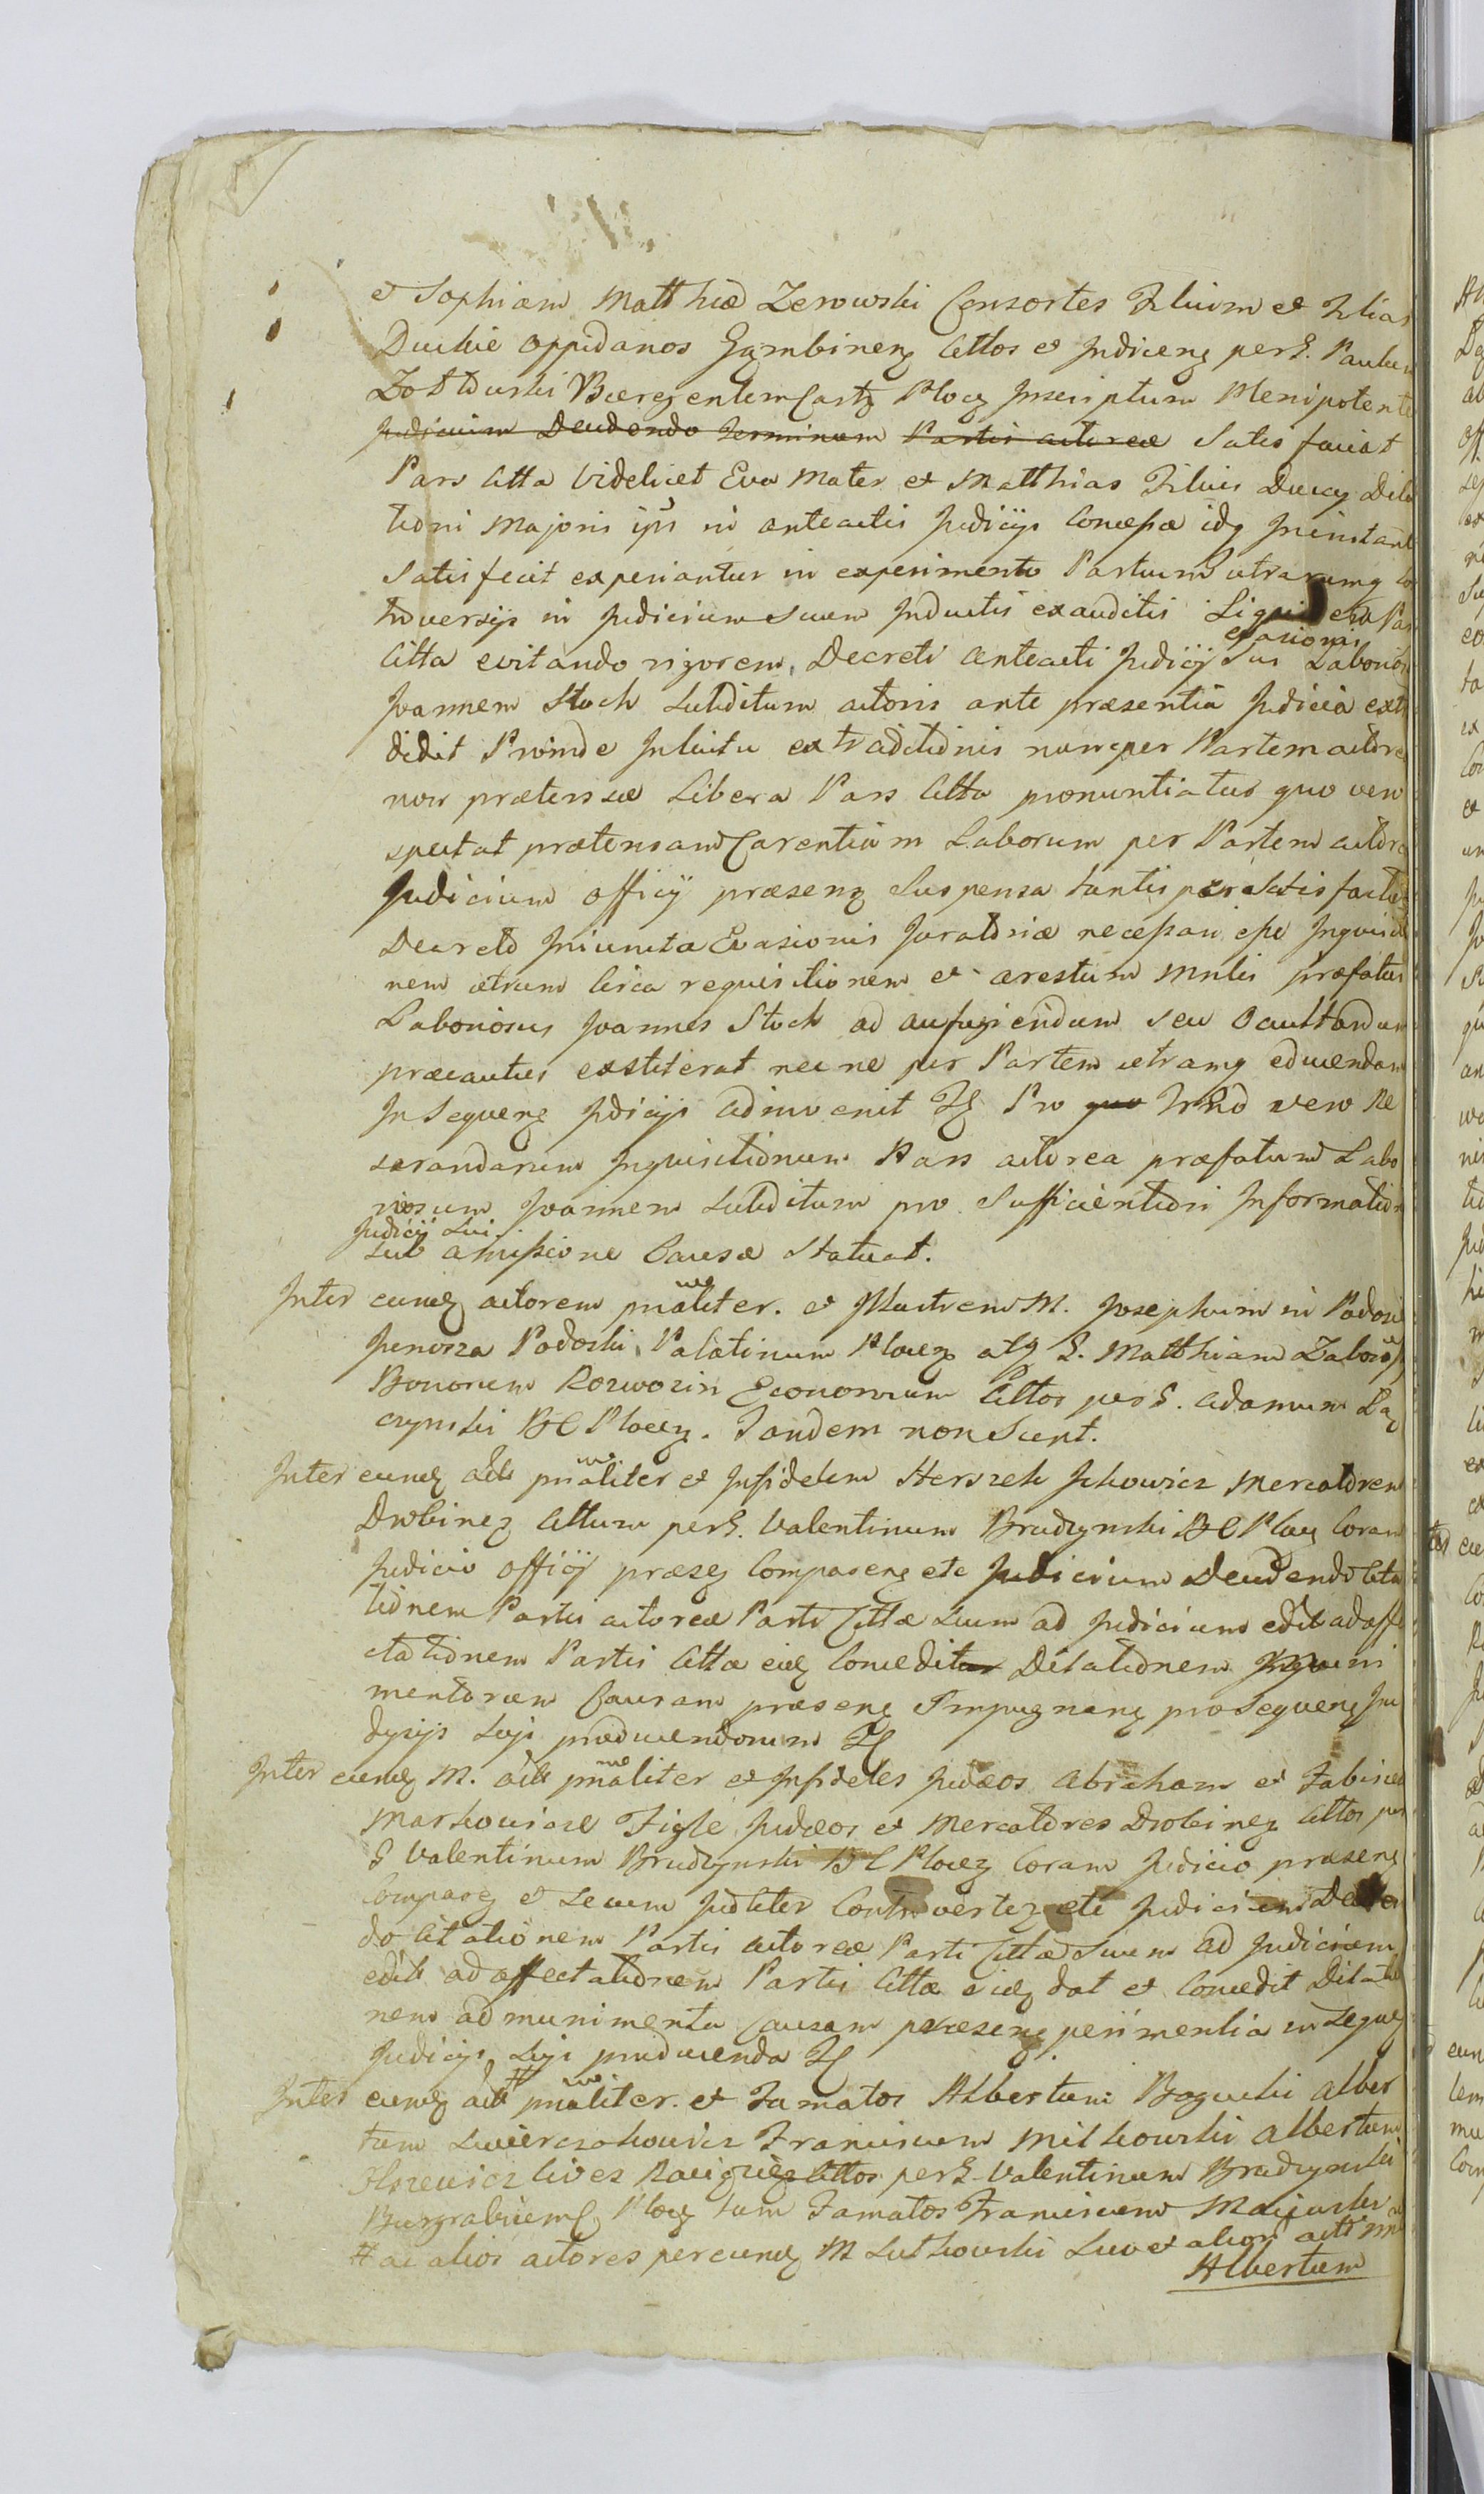 et Sophiam Matthiæ Zerowski Consortes Filium et Filias
Duckie oppidanos Gąmbinenȩ Cittos et Judicenȩ per G. Paulum
Burgentem Castȩ Plocȩ Inscriptum Plenipotente
Judicium Decidendo Terminum Partis actoreæ Satis faciat
Pars Citta Videlicet Eva Mater et Matthias Filius Ducey Dila
tioni Majoris ips in anteactis Judicijs Concessæ idq Ininstant
Satis fecit experiantur in experimento Partium utrarumq Co
troversijs in Judicium Suum Inductis exauditis Pars
evasionis
Citta evitando rigorem Decreti anteacti Judicij Sui Laborios
Joannem Stoch Subditum actoris ante præsentia Judicia extra
didit Proinde Intuitu extraditionis nunc per Partem actorea
non prætensæ Libera Pars Citta pronuntiatur quo vero
spectat prætensam Carentiam Laborum per Partem actorea
Judicium officij præsenȩ Suspensa tantisper Satisfactio
Decreto Iniuncta Evasionis Juratoriæ necessari esse Inquisitio
nem utrum circa requisitionem et arestum præfatus
Laboriosus Joannes Stoch ad aufugiendum seu Occultandum
præcautus exstiterat nec ne per Partem utramq educendam
In Sequenȩ Jdicijs adinvenit Pro quo vero Re
serandarum Inquisitionum Pars actorea præfatum Labo
riosum Joannem Subditum pro Sufficientiori Informatione
Judicij Sui
Sub amissione Causæ Statuat.
Inter eundȩ actorem pnaliter. et Illustrem M. Josephum in Podosie
Junosza Podoski, Palatinum Plocȩ atq G. Matthiam Zabo
Bonorum Rozwozin Economum Cittos per G. Adamum Łą
czynski BC Plocȩ. Tandem non Sunt.
Inter eundȩ act pnaliter et Infidelem Herszek Ickowicz Mercatorem
Drobinȩ Cittum per G. Valentinum Brudzynski BC Plocȩ Coram
Judicio officij præsȩ Comparenȩ etc Judicium Decidendo Cita
tionem Partis actoreæ Parti Cittæ Suum ad Judicium edit ad affe
ctationem Partis Cittæ eidȩ Conceditur Dilationem
mentorum Causam præsenȩ Impugnanȩ pro Sequenȩ Ju
dicijs Suis producendorum
Inter eundȩ M. act pnaliter et Infideles Judæos Abraham et Fabisz
Markowicze Figle Judæos et Mercatores Drobinȩ Cittos per
G Valentinum Brudzynski BC Plocȩ Coram Judicio præsenȩ
Comparȩ et Secum Juditer Controvertȩ etc Judicium Deciden
do Citationem Partis actoreæ Parti Cittæ Suum ad Judicium
edit ad affectationem Partis Cittæ eidȩ dat et Concedit Dilatio
nem ad munimenta Causam præsenȩ perimentia in Sequȩ
Judicijs Suis producenda
Inter eundȩ act # pnaliter. et Famatos Albertum Bogucki Alber
tum Swierczohowicz Franciscum Milkowski Albertum
cives Racigziȩ Cittos per G. Valentinum Brudzynski
Burgrabium C Plocȩ tum Famatos Franciscum
# ac alios actores per eundȩ M Lutkowski Suo et alior act
Albertum